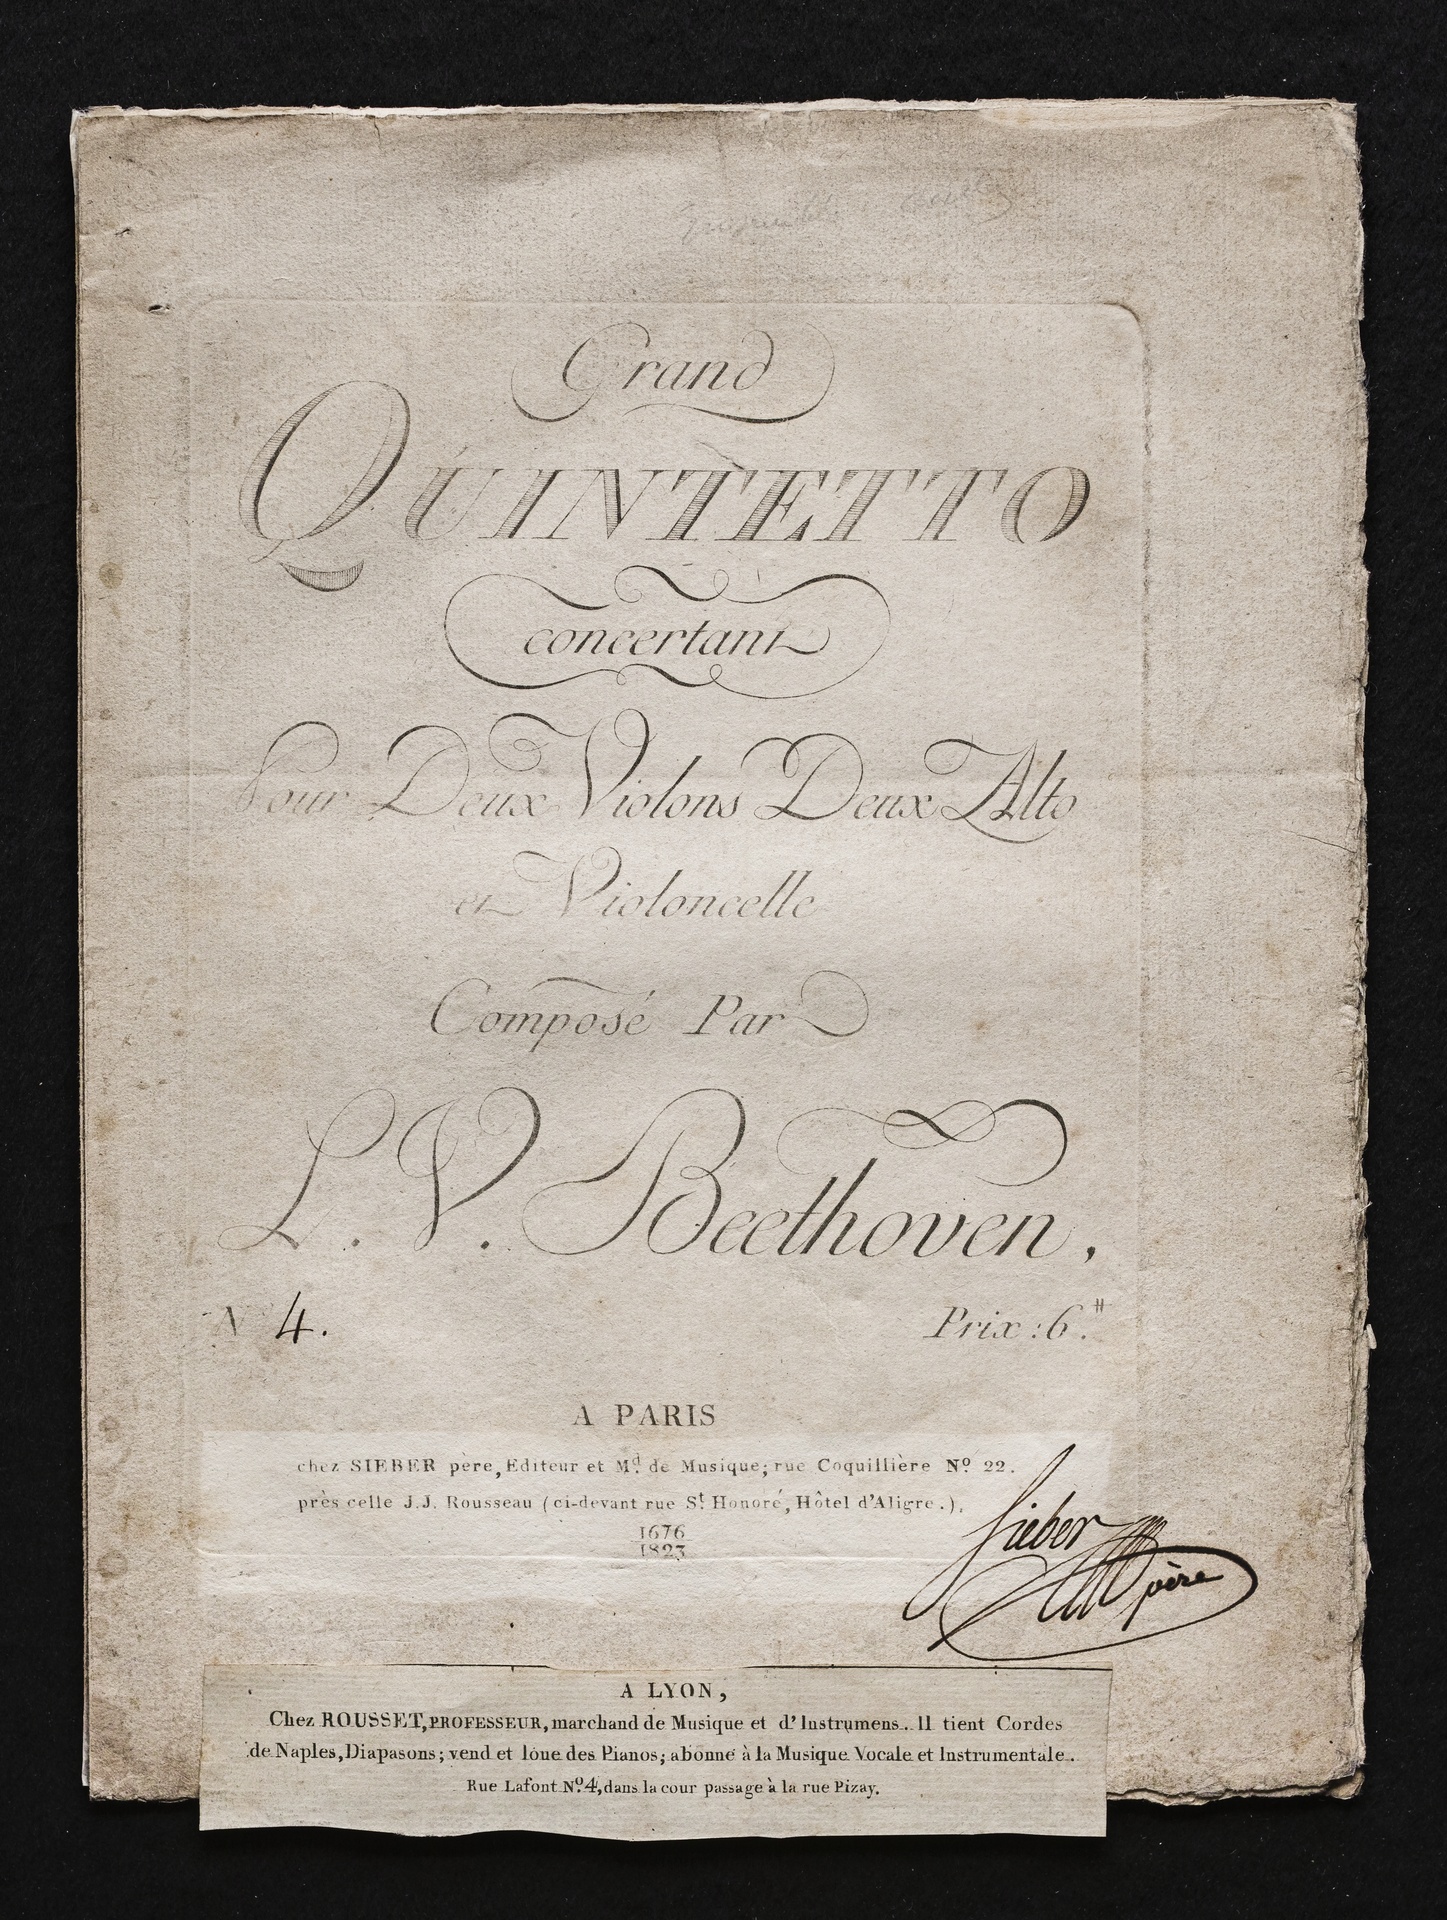 Grand
QUINTETTO
concertant
Pour Deux Violons Deux Alto
et Violoncelle
Composé Par
L. V. Beethoven,
N 4. Prix : 6.#
A PARIS
chez SIEBER père, Editeur et Md. de Musique; rue Coquillière No. 22.
près celle J.J. Rousseau (ci-devant rue St. Honoré, Hôtel d'Aligre.),
1676
1823
Sieber
père
A LYON,
Chez ROUSSET, PROFESSEUR, marchand de Musique et d'Instrumens.. Il tient Cordes
de Naples, Diapasons; vend et loue des Pianos; abonne à la Musique Vocale et Instrumentale..
Rue Lafont No. 4, dans la cour passage à la rue Pizay.